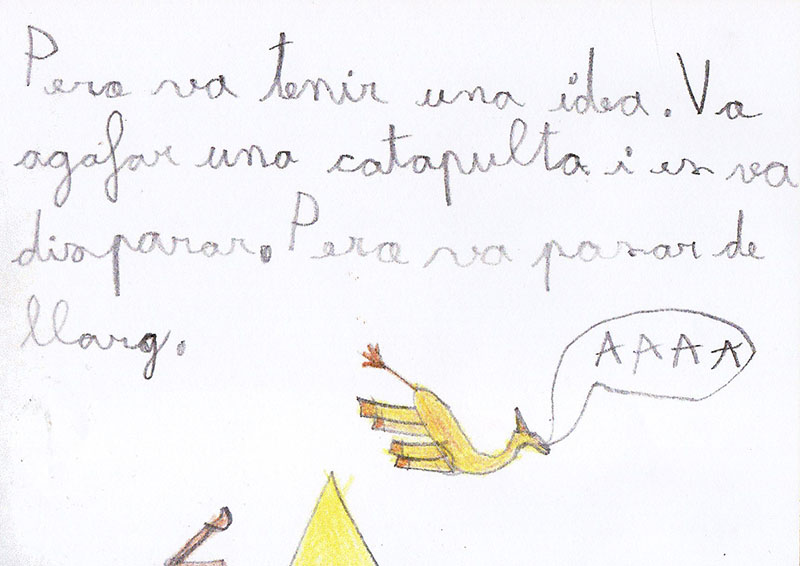 Pero va tenir una idea. Va
agafar una catapulta i es va
disparar. Pero va pasar de
llarg.
AAAA